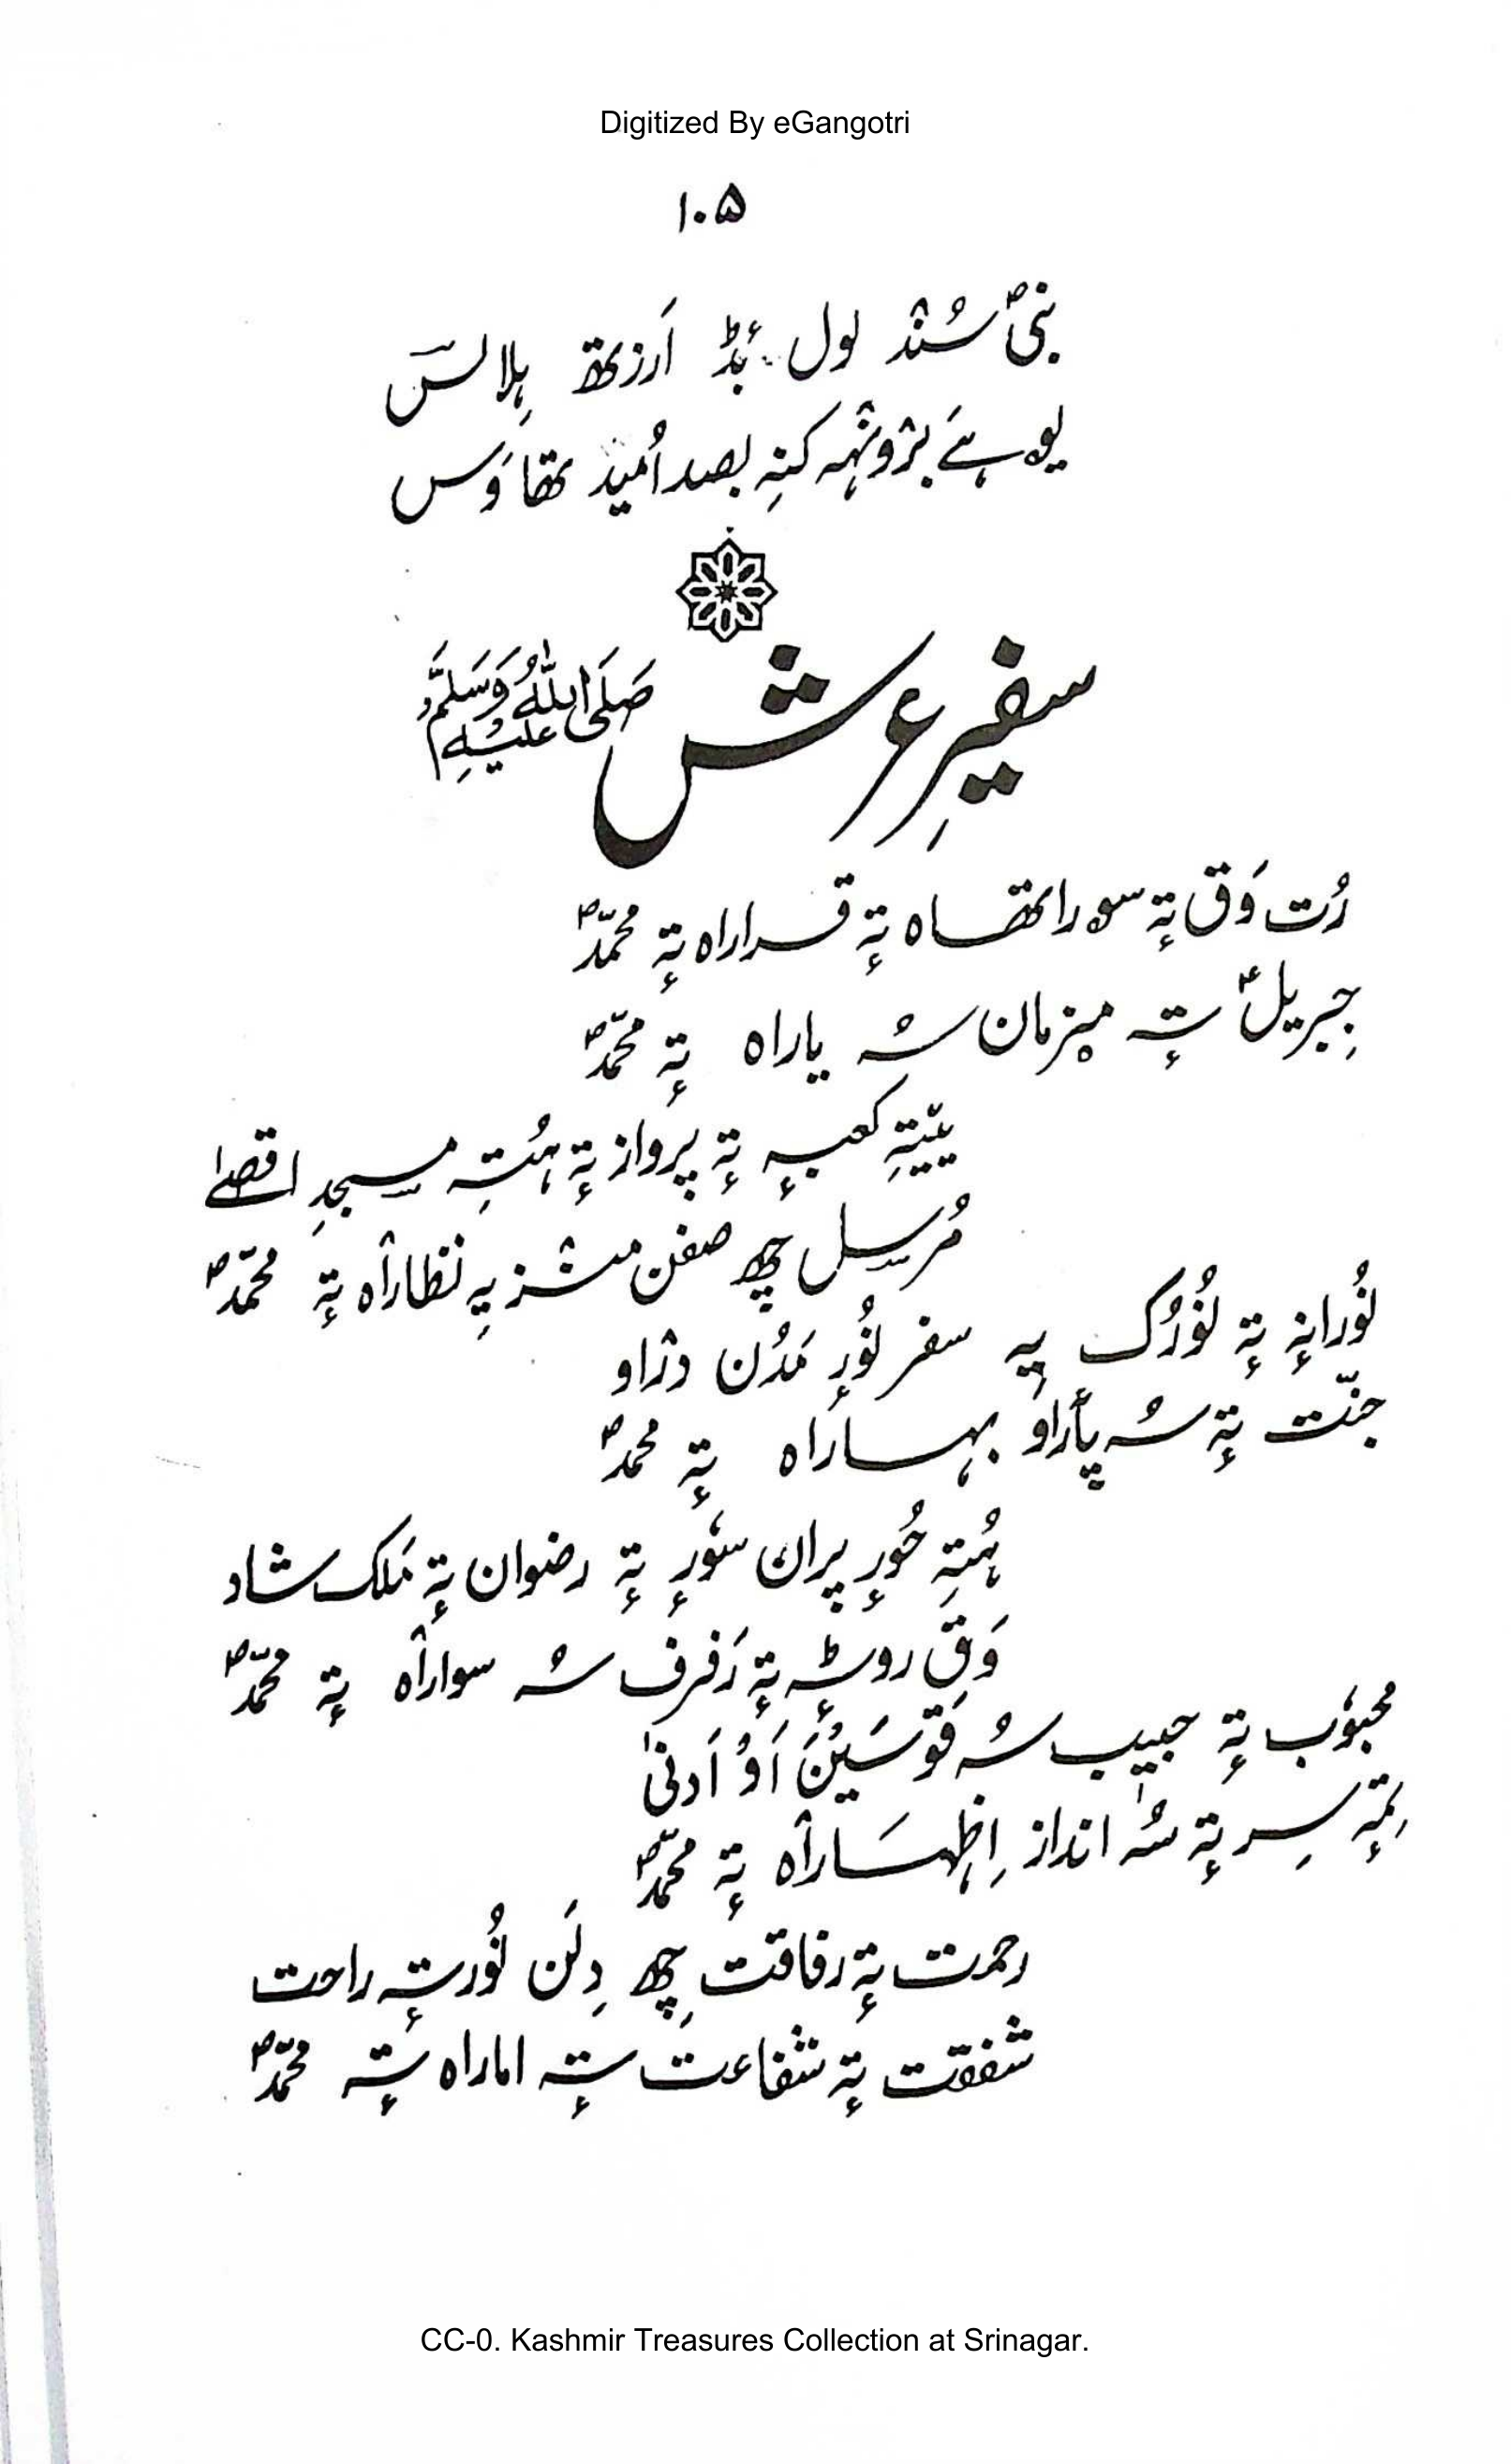 Digitized By eGangotri
۱۰۵
نبیؐ سُنٛد لول بٔڈ أرزتھ ہِلالسَ
یوہے برٛونٛہہ کنہِ بصد اُمید تھاوَس
سفیرِ عرش صَلَّی اللہُ عَلَیْہِ وَسَلَّم
رُت وَق تہٕ سوراتھاہ تہٕ قراراہ تہٕ محمدؐ
جِبریلؑ تہٕ میزمان سُہ یاراہ تہٕ محمدؐ
ییتہِ کعبہٕ تہٕ پرواز تہٕ ہُتہِ مسجدِ اقصےٰ
مُرسل چھِ صفن منٛز یہِ نظاراہ تہٕ محمدؐ
نُورانہٕ تہٕ نُورُک یہِ سفر نُورٕ مَدُن دراو
جنّت تہٕ سُہ پٲراو بہاراہ تہٕ محمدؐ
ہُتہِ حُورٕ پران سوٗرٕ تہٕ رضوان تہٕ مَلک شاد
وَقی روٹہٕ تہٕ رَفرف سُہ سواراہ تہٕ محمدؐ
محبوٗب تہٕ حبیب سُہ قَوْسَیْنَ اَوْ اَدنیٰ
تِمہٕ سِر تہٕ سُہ انداز اِظہاراہ تہٕ محمدؐ
رحمت تہٕ رفاقت چھِ دِلَن نُور تہٕ راحت
شفقت تہٕ شفاعت تہٕ اماراہ تہٕ محمدؐ
CC-0. Kashmir Treasures Collection at Srinagar.